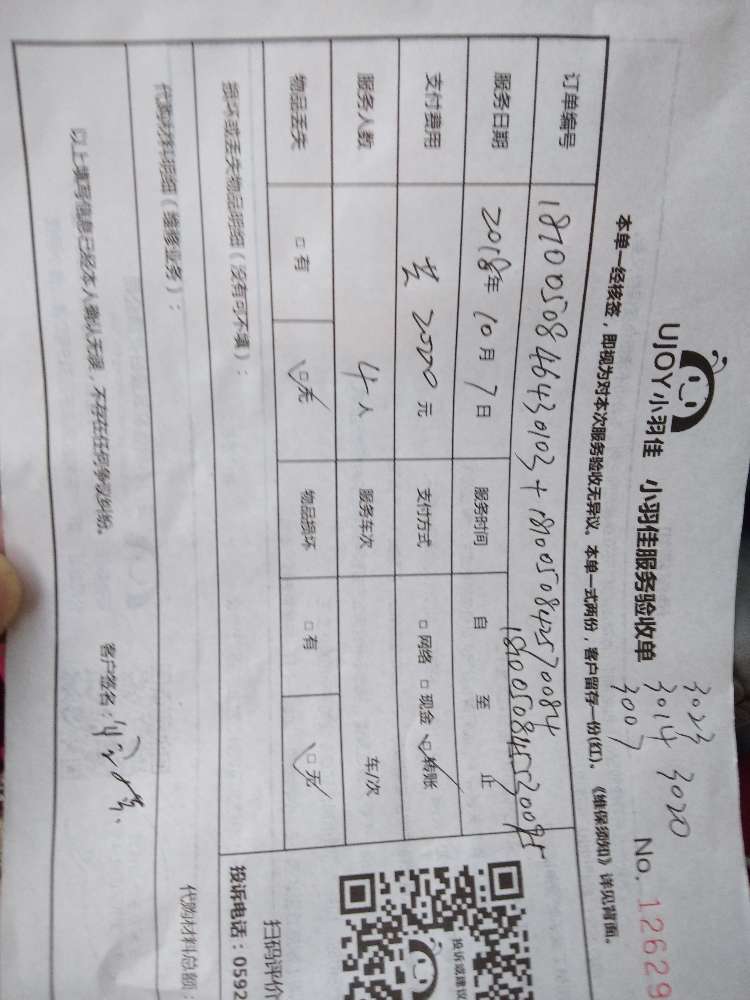 3023
3014 3020
3007
UJOY小羽佳 小羽佳服务验收单
No. 12629
本单一经核签，即视为对本次服务验收无异议。本单一式两份，客户留存一份(红)。《维保须知》详见背面。
订单编号 1810050846430103 + 1810050842570084
1810050845530095
服务日期 2018年 10月 7日 服务时间 自 至 止
支付费用 共 2000 元 支付方式 □ 网络 □ 现金 ☑ 转账
服务人数 4 人 服务车次 车/次
物品丢失 □ 有 ☑ 无 物品损坏 □ 有 ☑ 无
损坏或丢失物品明细（没有可不填）：
代购材料明细（维修业务）：
代购材料总额：
以上填写信息已经本人确认无误，不存在任何争议纠纷。
客户签名：
投诉或建议
扫码评价
投诉电话：0592